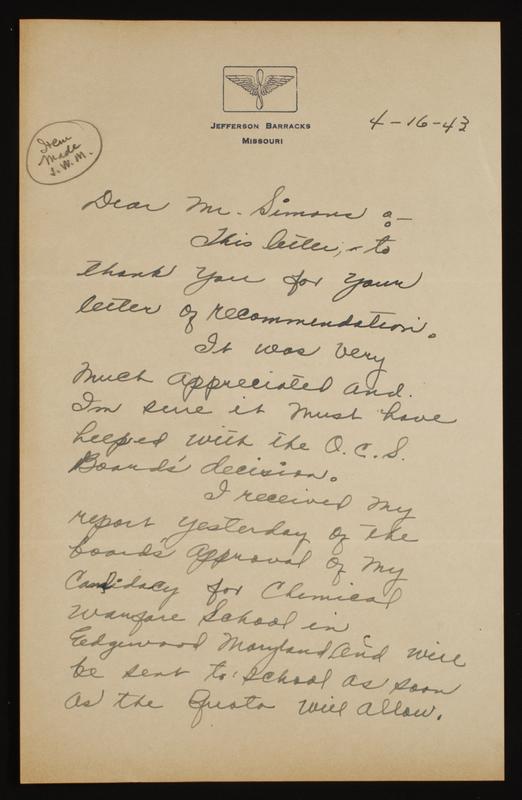 JEFFERSON BARRACKS
MISSOURI
4-16-43
Item
Made
I.W.M.
Dear Mr. Simons :-
This letter, - to
thank you for your
letter of recommendation.
It was very
much appreciated and.
I'm sure it must have
helped with the O.C.S.
Boards' decision.
I received my
report yesterday of the
boards' approval of my
Candidacy for Chemical
Warfare School in
Edgewood Maryland and will
be sent to school as soon
as the Quota will allow.